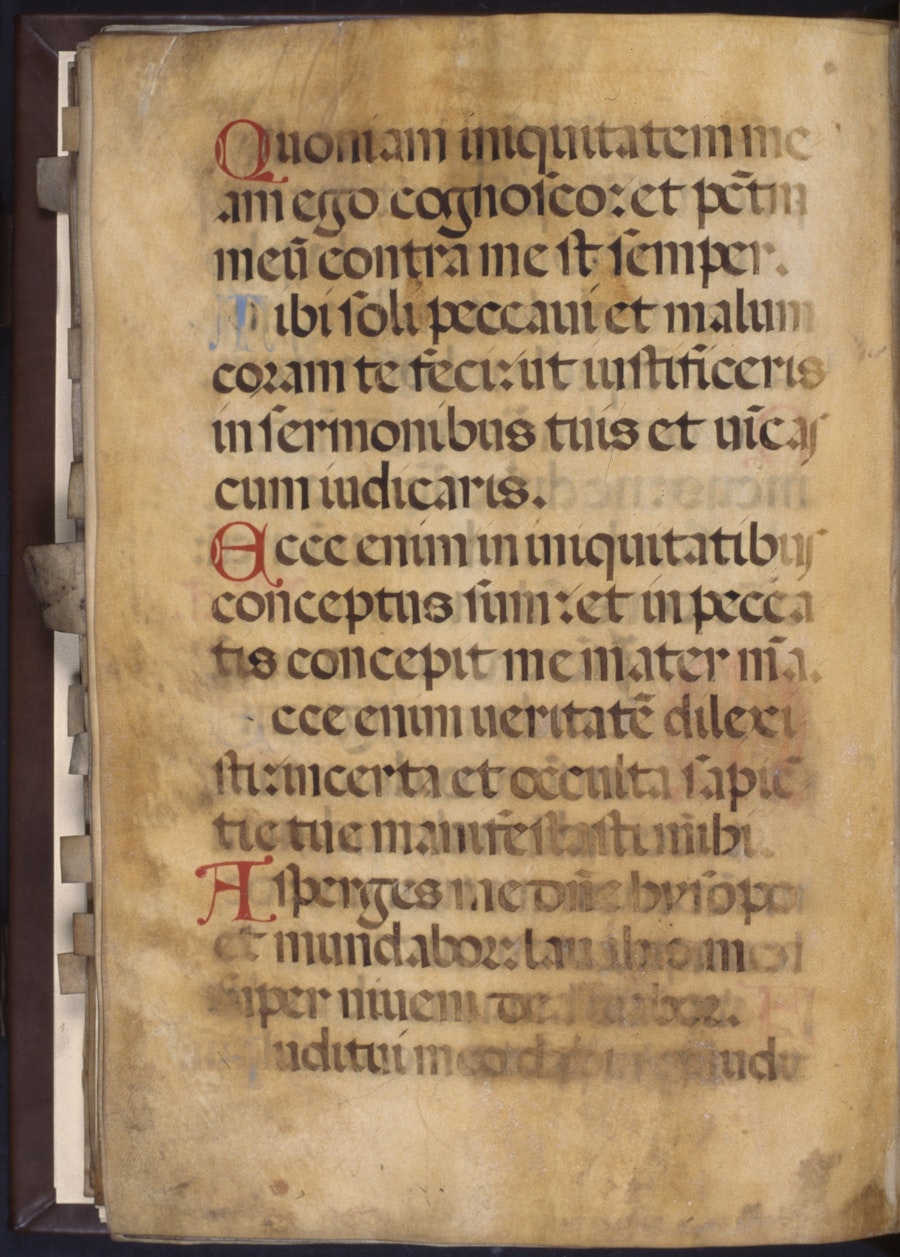 Quoniam iniquitatem me
am ego cognosco: et pctm̄
meū contra me st semper.
Tibi soli peccaui et malum
coram te feci: ut iustificeris
in sermonibus tuis et uīcas
cum iudicaris.
Ecce enim in iniquitatibus
conceptus sum: et in pecca
tis concepit me mater m̄a.
cce enim ueritatē dilexi
sti: incerta et occulta sapiē
tie tue manifestasti michi.
Asperges me dn̄e hysopo
et mundabor: lauabis me
super niuem dealbabor.
uditui meo dabis gaudi